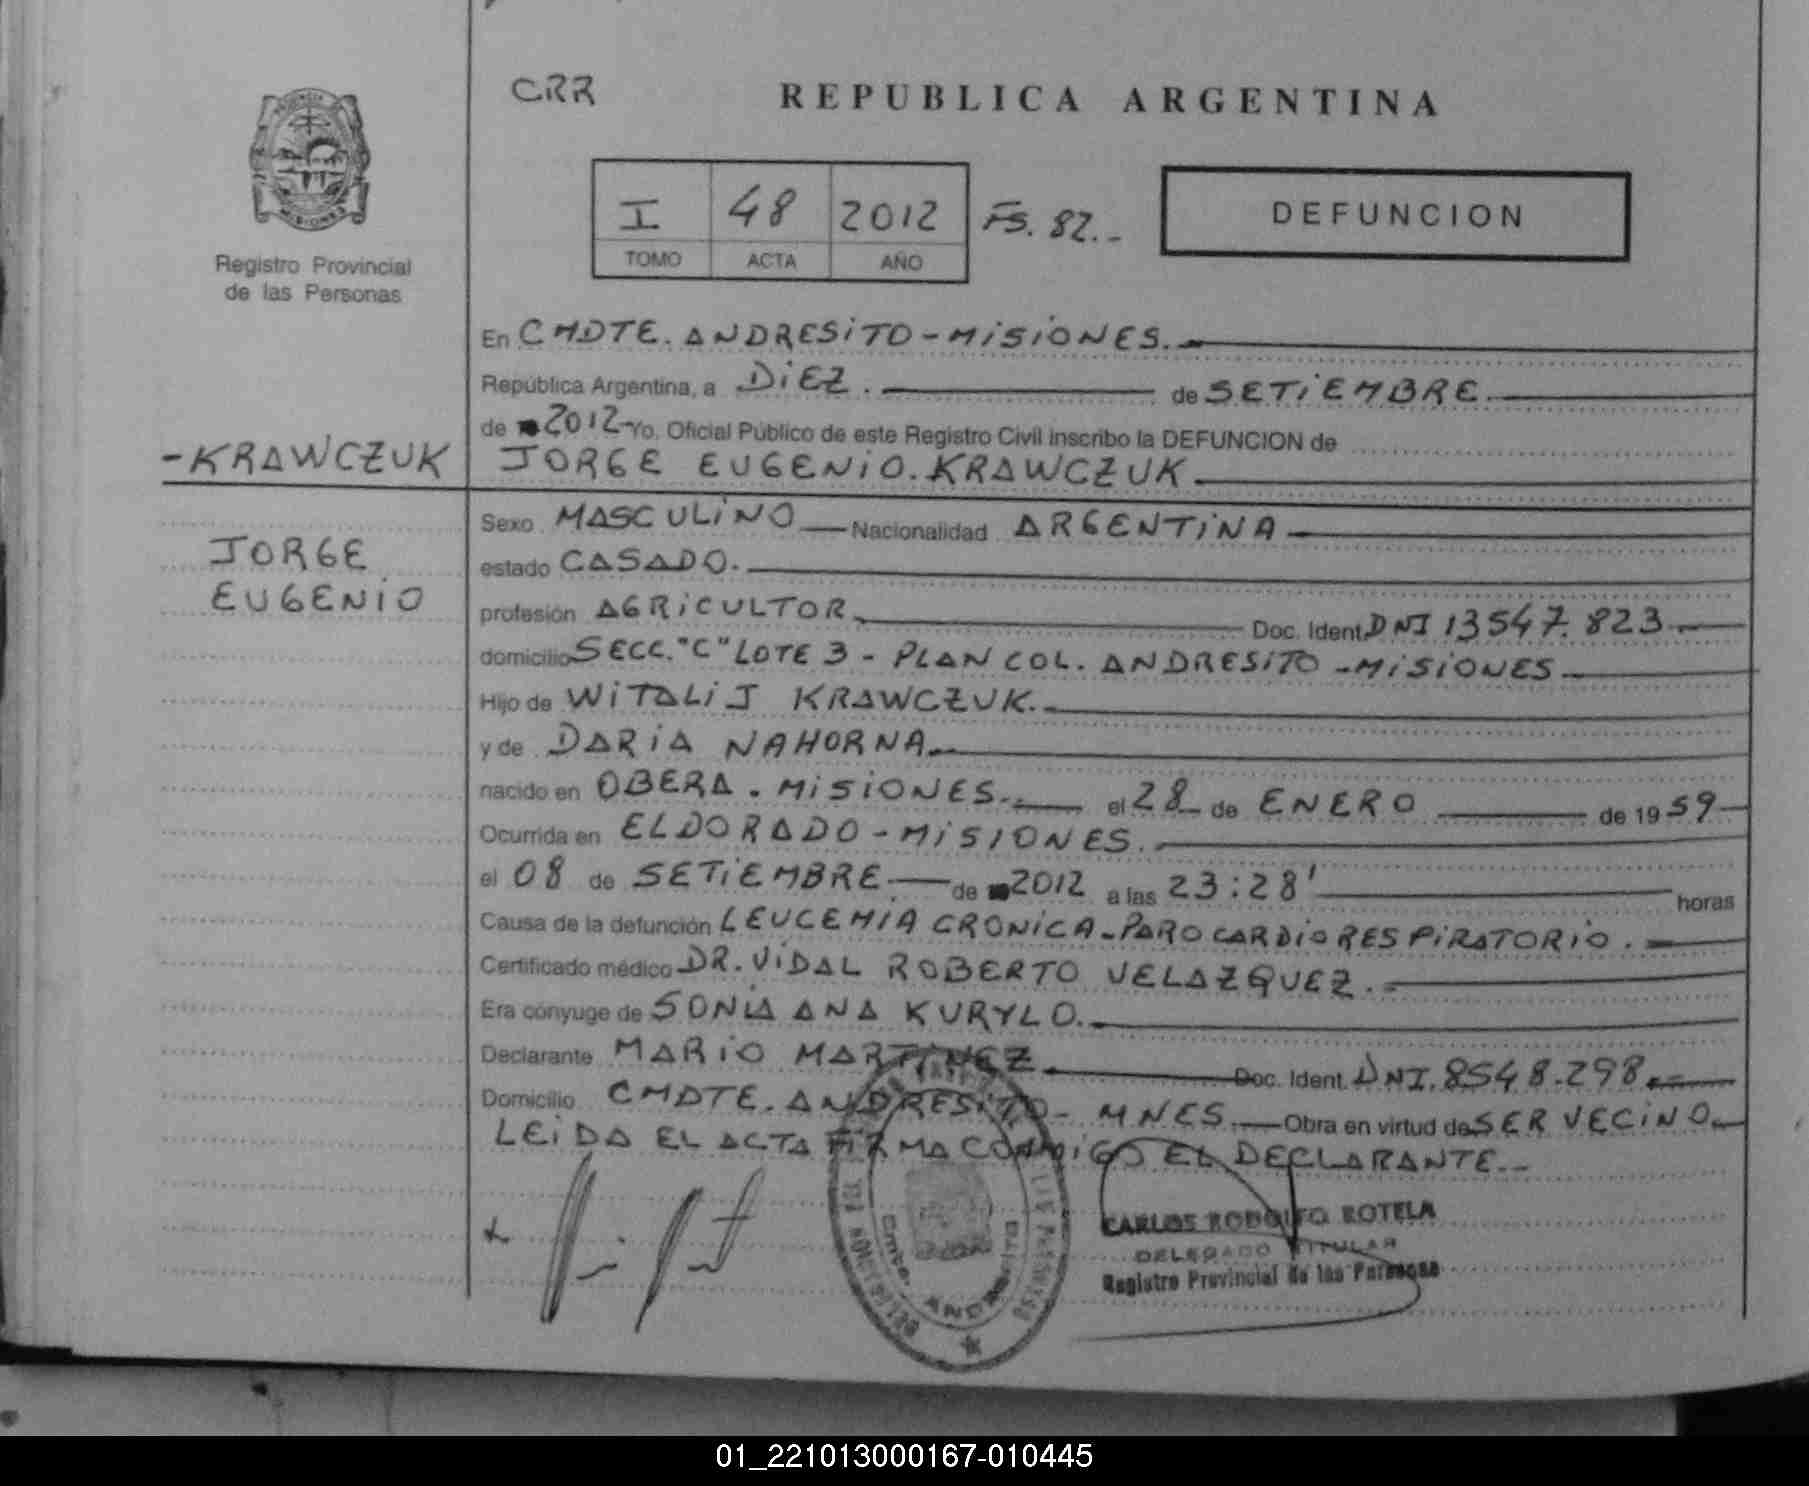 CRR
REPUBLICA ARGENTINA
I 48 2012 FS. 82.-
TOMO ACTA AÑO
DEFUNCION
MISIONES
Registro Provincial
de las Personas
En CMDTE. ANDRESiTO - MiSiONES.
República Argentina, a DiEZ. de SETiEMBRE
de 2012 Yo, Oficial Público de este Registro Civil inscribo la DEFUNCION de
JORGE EUGENiO. KRAWCZUK
-KRAWCZUK
JORGE
EUGENiO
Sexo MASCULiNO Nacionalidad ARGENTiNA
estado CASADO.
profesión AGRiCULTOR Doc. Ident. DNI 13547.823
domicilio SECC. "C" LOTE 3 - PLAN COL. ANDRESiTO - MiSiONES
Hijo de WiTALiJ KRAWCZUK.
y de DARiA NAHORNA
nacido en OBERA. MiSiONES. el 28 de ENERO de 1959
Ocurrida en ELDORADO - MiSIONES.
el 08 de SETiEMBRE de 2012 a las 23:28' horas
Causa de la defunción LEUCEMIA CRONiCA - PARO CARDiORESPiRATORiO.
Certificado médico DR. ViDAL ROBERTO VELAZQUEZ.
Era cónyuge de SONIA ANA KURYLO.
Declarante MARiO MARTINEZ Doc. Ident. DNI. 8548.298
Domicilio CMDTE. ANDRESITO - MNES. Obra en virtud de SER VECiNO
LEiDA EL ACTA FIRMA CONMiGO EL DECLARANTE.-
CARLOS RODOLFO ROTELA
DELEGADO TITULAR
Registro Provincial de las Personas
01_221013000167-010445